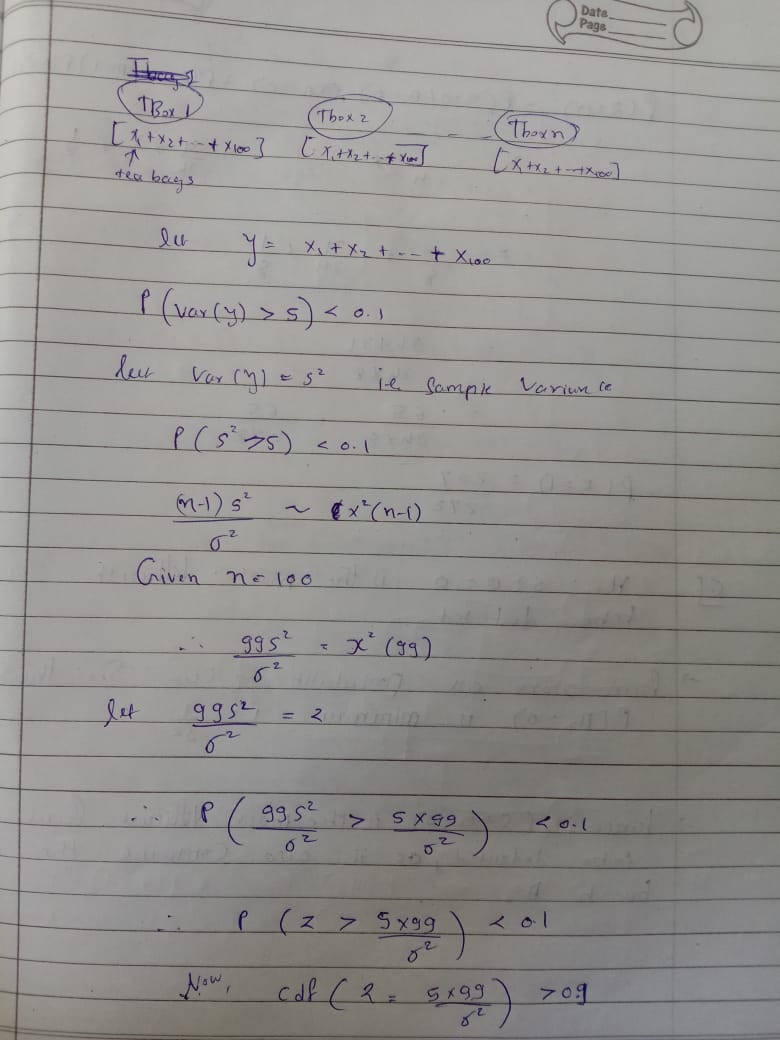 Date
Page
TBox 1
Tbox 2
- - -
Tbox n
[x₁ + x₂ + ... + x₁₀₀]
[x₁ + x₂ + ... + x₁₀₀]
[x₁ + x₂ + ... + x₁₀₀]
↑
tea bags
let y = x₁ + x₂ + ... + x₁₀₀
P(Var(y) > 5) < 0.1
let Var(y) = s² i.e Sample Variance
P(s² > 5) < 0.1
(n-1)s² / σ² ~ x²(n-1)
Given n = 100
∴ 99s² / σ² = x²(99)
let 99s² / σ² = z
∴ P(99s² / σ² > 5×99 / σ²) < 0.1
∴ P(z > 5×99 / σ²) < 0.1
Now, cdf(z = 5×99 / σ²) > 0.9